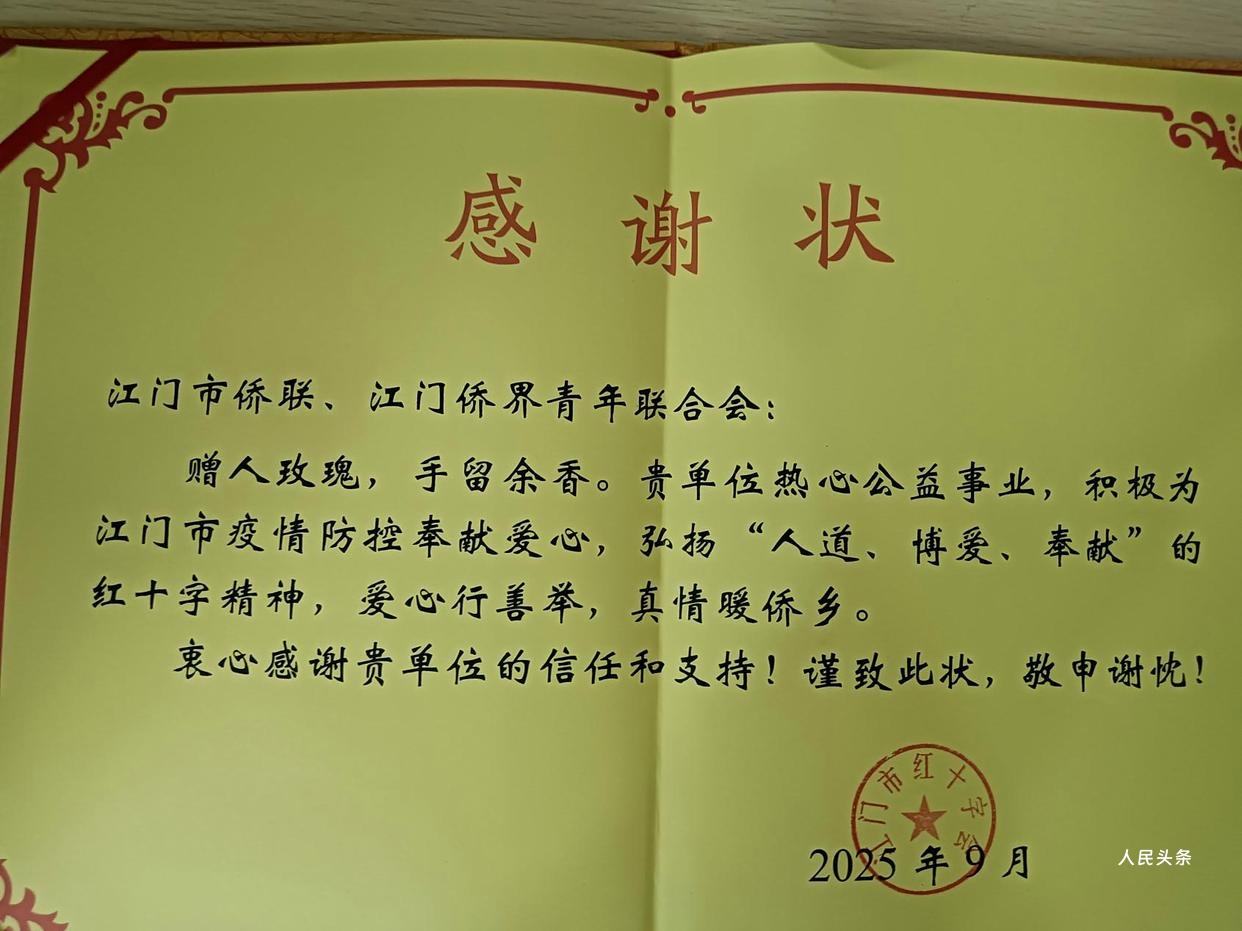 感谢状
江门市侨联、江门侨界青年联合会：
赠人玫瑰，手留余香。贵单位热心公益事业，积极为
江门市疫情防控奉献爱心，弘扬“人道、博爱、奉献”的
红十字精神，爱心行善举，真情暖侨乡。
衷心感谢贵单位的信任和支持！谨致此状，敬申谢忱！
江门市红十字会
2025年9月
人民头条